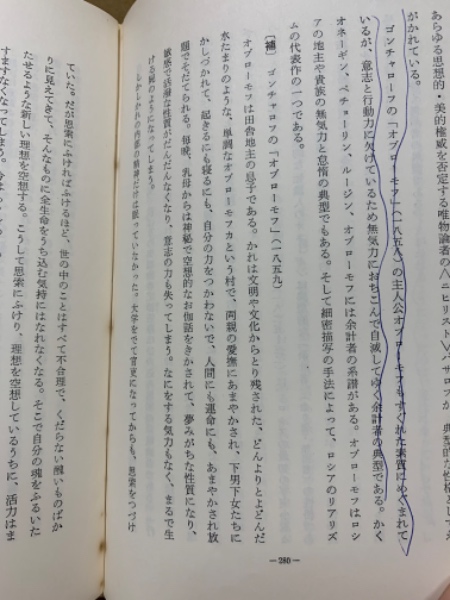 あらゆる思想的・美的権威を否定する唯物論者の〈ニヒリスト〉バザロフが、典型的な性格とし
がかれている。
ゴンチャローフの「オブローモフ」(一八五九)の主人公オブローモフもすぐれた素質にめぐまれて
いるが、意志と行動力に欠けているため無気力におちこんで自滅してゆく余計者の典型である。かく
オネーギン、ペチョーリン、ルージン、オブローモフには余計者の系譜がある。オブローモフはロシ
アの地主や貴族の無気力と怠惰の典型でもある。そして細密描写の手法によって、ロシアのリアリズ
ムの代表作の一つである。
〔補〕 ゴンチャローフの「オブローモフ」(一八五九)
オブローモフは田舎地主の息子である。かれは文明や文化からとり残された、どんよりとよどんだ
水たまりのような、単調なオブローモフカという村で、両親の愛撫にあまやかされ、下男下女たちに
かしづかれて、起きるにも寝るにも、自分の力をつかわないで、人間にも運命にも、あまやかされ放
題でそだてられる。毎晩、乳母からは神秘で空想的なお伽話をきかされて、夢みがちな性質になり、
敏感で活潑な性質がだんだんなくなり、意志の力も失ってしまう。なにをする気力もなく、まるで生
ける屍のようになってしまう。
しかしかれの内部の精神だけは眠っていなかった。大学をでて官吏になってからも、思索をつづけ
ていた。だが思索にふければふけるほど、世の中のことはすべて不合理で、くだらない醜いものばか
りに見えてきて、そんなものに全生命をうち込む気持にはなれなくなる。そこで自分の魂をふるいた
たせるような新しい理想を空想する。こうして思索にふけり、理想を空想しているうちに、活力はま
すますなくなってしまう。
—280—